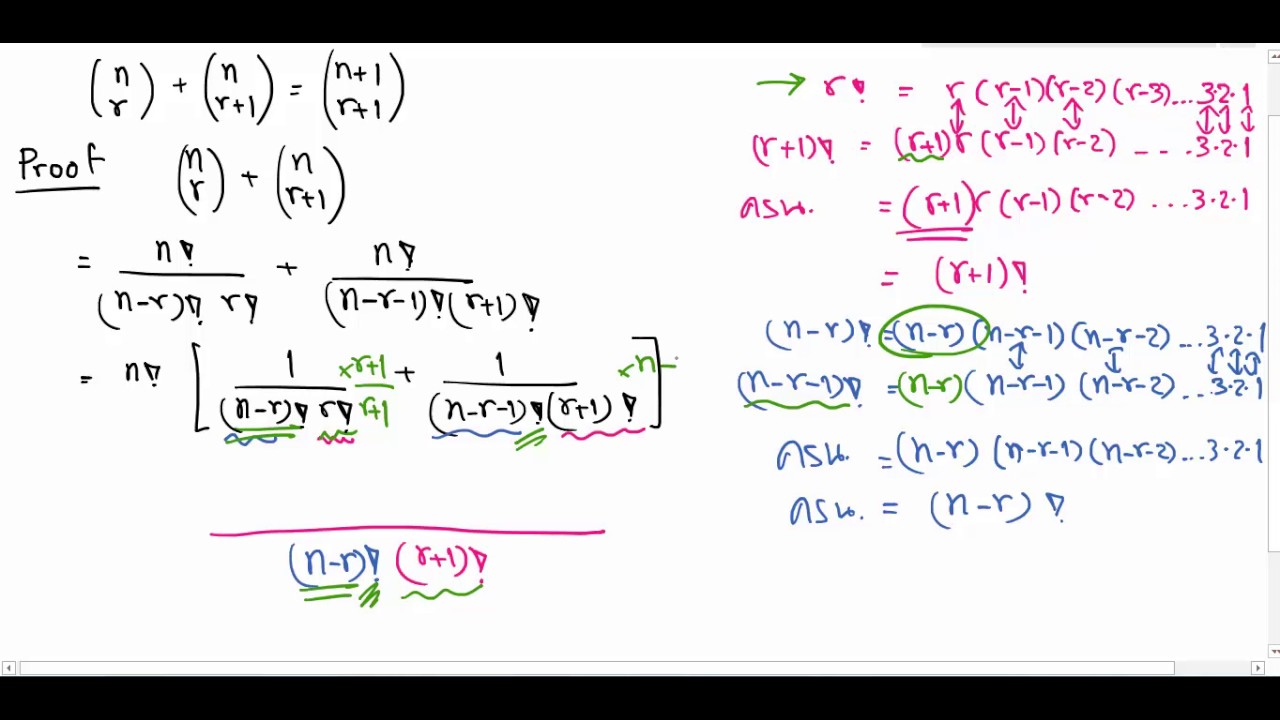 (n r) + (n r+1) = (n+1 r+1)
Proof (n r) + (n r+1)
= n! / (n-r)! r! + n! / (n-r-1)! (r+1)!
= n! [ 1 / (n-r)! r! × r+1 / r+1 + 1 / (n-r-1)! (r+1)! × n- ]
(n-r)! (r+1)!
→ r! = r (r-1)(r-2)(r-3)...3·2·1
(r+1)! = (r+1) r (r-1)(r-2) - - ...3·2·1
ครน. = (r+1) r (r-1)(r-2) ...3·2·1
= (r+1)!
(n-r)! = (n-r)(n-r-1)(n-r-2)...3·2·1
(n-r-1)! = (n-r)(n-r-1)(n-r-2)...3·2·1
ครน. = (n-r)(n-r-1)(n-r-2)...3·2·1
ครน. = (n-r)!